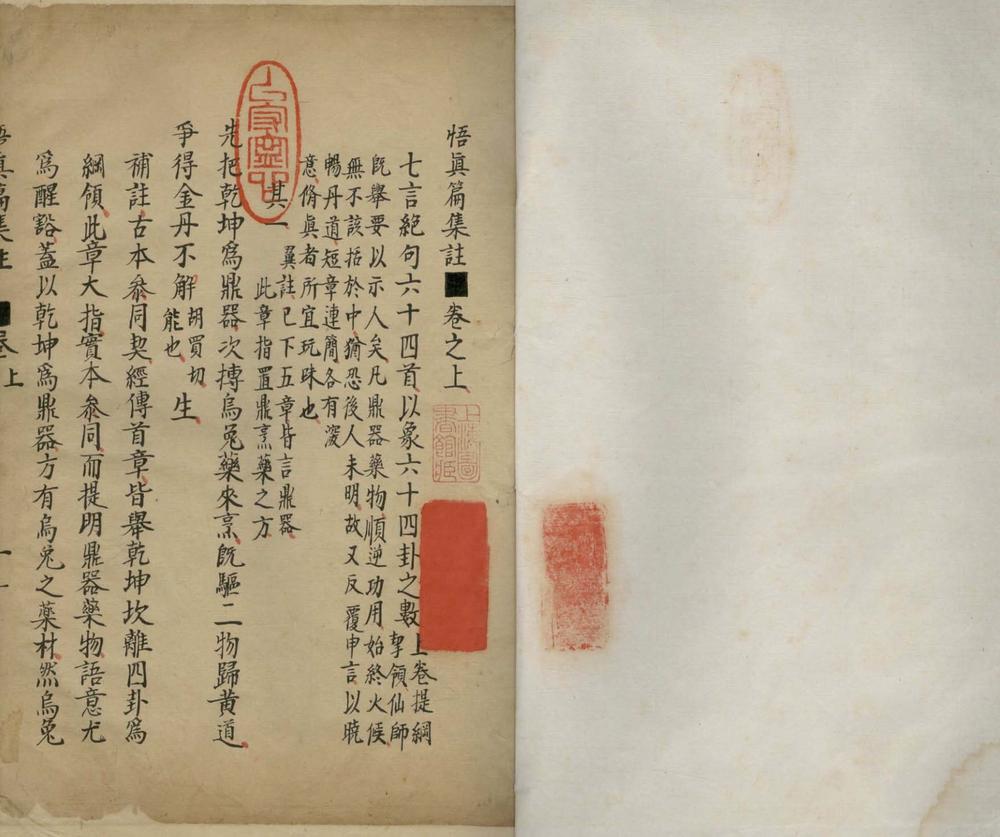 悟眞篇集註 卷之上
七言絕句六十四首以象六十四卦之數上卷提綱
挈領仙師
旣舉要以示人矣凡鼎器藥物順逆功用始終火候
無不該括於中猶恐後人未明故又反覆申言以曉
暢丹道短章連簡各有湥
意脩眞者所宜玩味也
其一
翼註已下五章皆言鼎器
此章指置鼎烹藥之方
先把乾坤爲鼎器次摶烏兔藥來烹旣驅二物歸黄道
爭得金丹不解胡買切能也生
補註古本叅同契經傳首章皆舉乾坤坎離四卦爲
綱領此章大指實本叅同而提明鼎器藥物語意尤
爲醒豁蓋以乾坤爲鼎器方有烏兔之藥材然烏兔
悟眞篇集註 卷上 一
上海圖書館藏